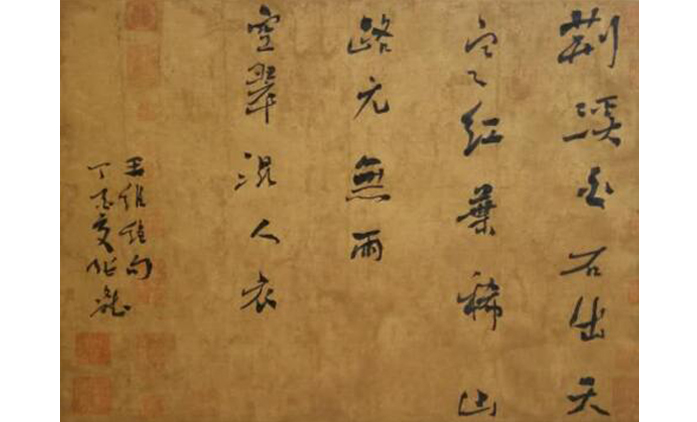 荆溪白石出天
寒红葉稀山
路元無雨
空翠湿人衣
王維詩句
丁夏作